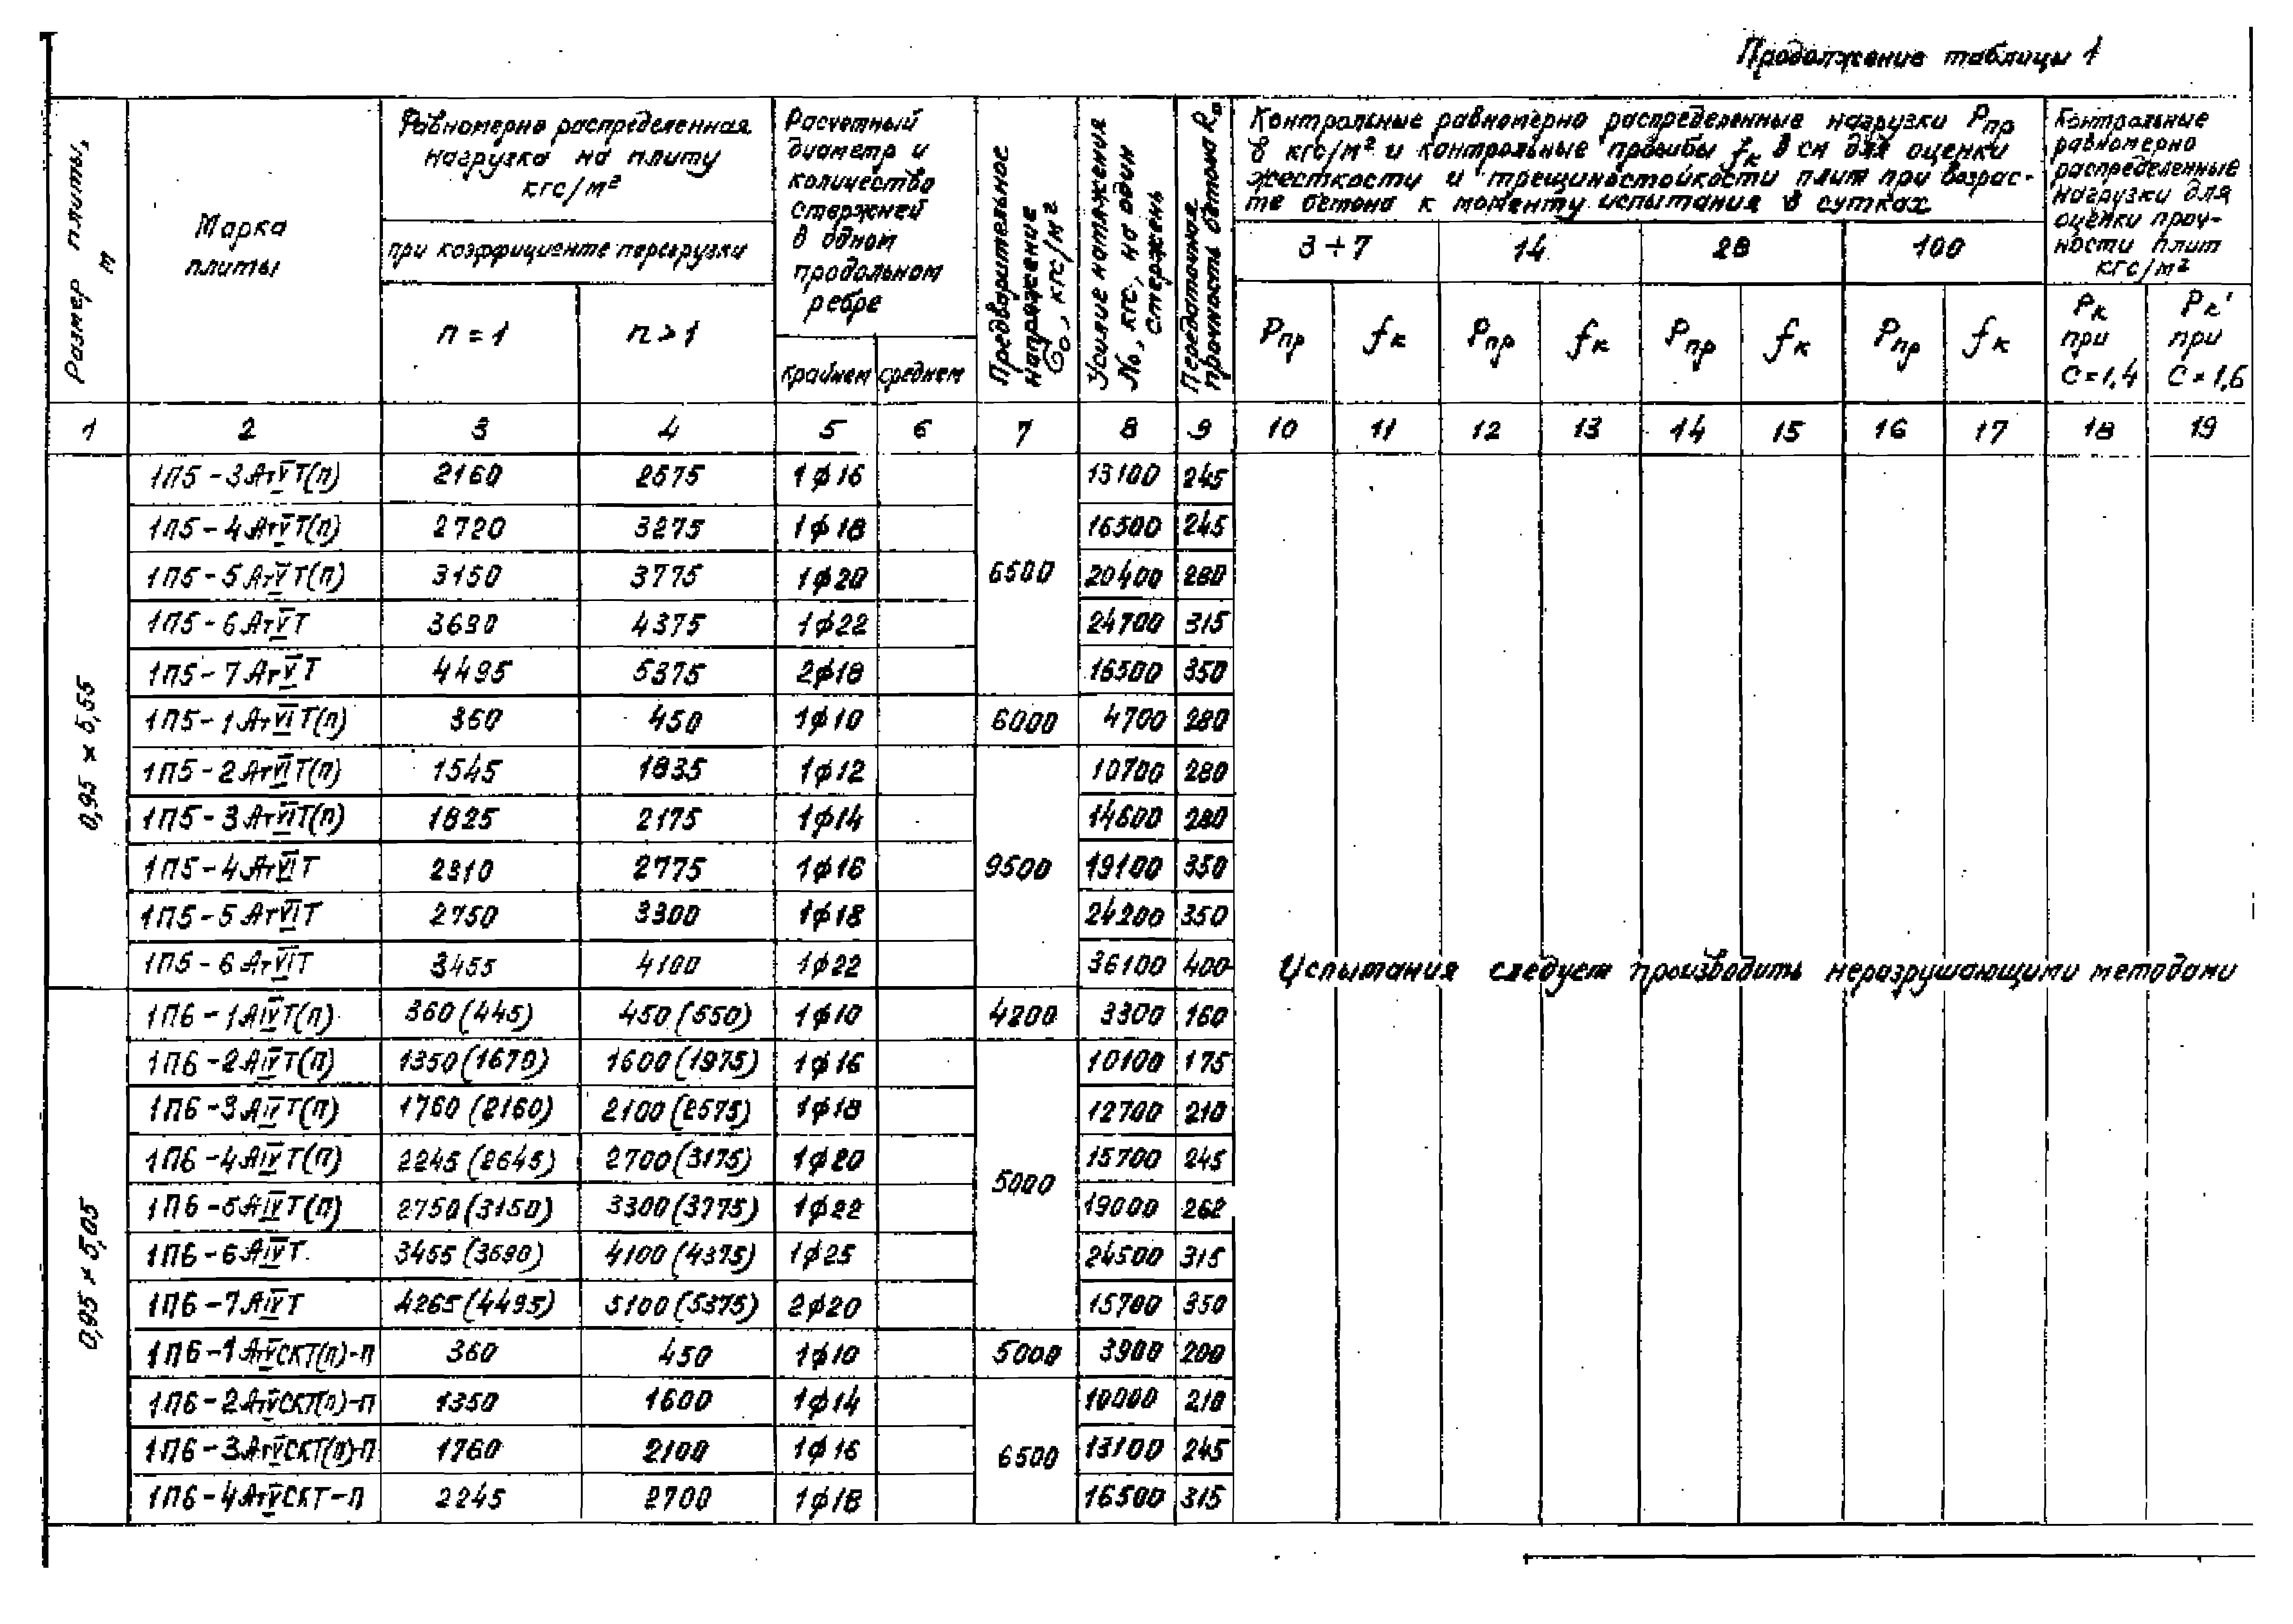 Продолжение таблицы 1
Размер плиты, м
Марка плиты
Равномерно распределенная нагрузка на плиту кгс/м²
при коэффициенте перегрузки
n = 1
n > 1
Расчетный диаметр и количество стержней в одном продольном ребре
крайнем
среднем
Предварительное напряжение σ₀, кгс/м²
Усилие натяжения N₀, кгс, на один стержень
Передаточная прочность бетона R₀
Контрольные равномерно распределенные нагрузки Pпр
в кгс/м² и контрольные прогибы fк в см для оценки
жесткости и трещиностойкости плит при возрас-
те бетона к моменту испытания в сутках
3÷7
14
28
100
Pпр fк Pпр fк Pпр fк Pпр fк
Контрольные
равномерно
распределенные
нагрузки для
оценки проч-
ности плит
кгс/м²
Pк при C=1,4
Pк' при C=1,6
1 2 3 4 5 6 7 8 9 10 11 12 13 14 15 16 17 18 19
0,95 × 5,55
1П5-3АтVТ(п) 2160 2575 1ϕ16 13100 245
1П5-4АтVТ(п) 2720 3275 1ϕ18 16500 245
1П5-5АтVТ(п) 3150 3775 1ϕ20 6500 20400 280
1П5-6АтVТ 3690 4375 1ϕ22 24700 315
1П5-7АтVТ 4495 5375 2ϕ18 16500 350
1П5-1АтVIТ(п) 360 450 1ϕ10 6000 4700 280
1П5-2АтVIТ(п) 1545 1835 1ϕ12 10700 280
1П5-3АтVIТ(п) 1825 2175 1ϕ14 14600 280
1П5-4АтVIТ 2310 2775 1ϕ16 9500 19100 350
1П5-5АтVIТ 2750 3300 1ϕ18 24200 350
1П5-6АтVIТ 3455 4100 1ϕ22 36100 400
Испытания следует производить неразрушающими методами
0,95 × 5,05
1П6-1АIVТ(п) 360(445) 450(550) 1ϕ10 4200 3300 160
1П6-2АIVТ(п) 1350(1670) 1600(1975) 1ϕ16 10100 175
1П6-3АIVТ(п) 1760(2160) 2100(2575) 1ϕ18 12700 210
1П6-4АIVТ(п) 2245(2645) 2700(3175) 1ϕ20 5000 15700 245
1П6-5АIVТ(п) 2750(3150) 3300(3775) 1ϕ22 19000 262
1П6-6АIVТ 3455(3690) 4100(4375) 1ϕ25 24500 315
1П6-7АIVТ 4265(4495) 5100(5375) 2ϕ20 15700 350
1П6-1АтVСКТ(п)-п 360 450 1ϕ10 5000 3900 200
1П6-2АтVСКТ(п)-п 1350 1600 1ϕ14 10000 210
1П6-3АтVСКТ(п)-п 1760 2100 1ϕ16 6500 13100 245
1П6-4АтVСКТ-п 2245 2700 1ϕ18 16500 315